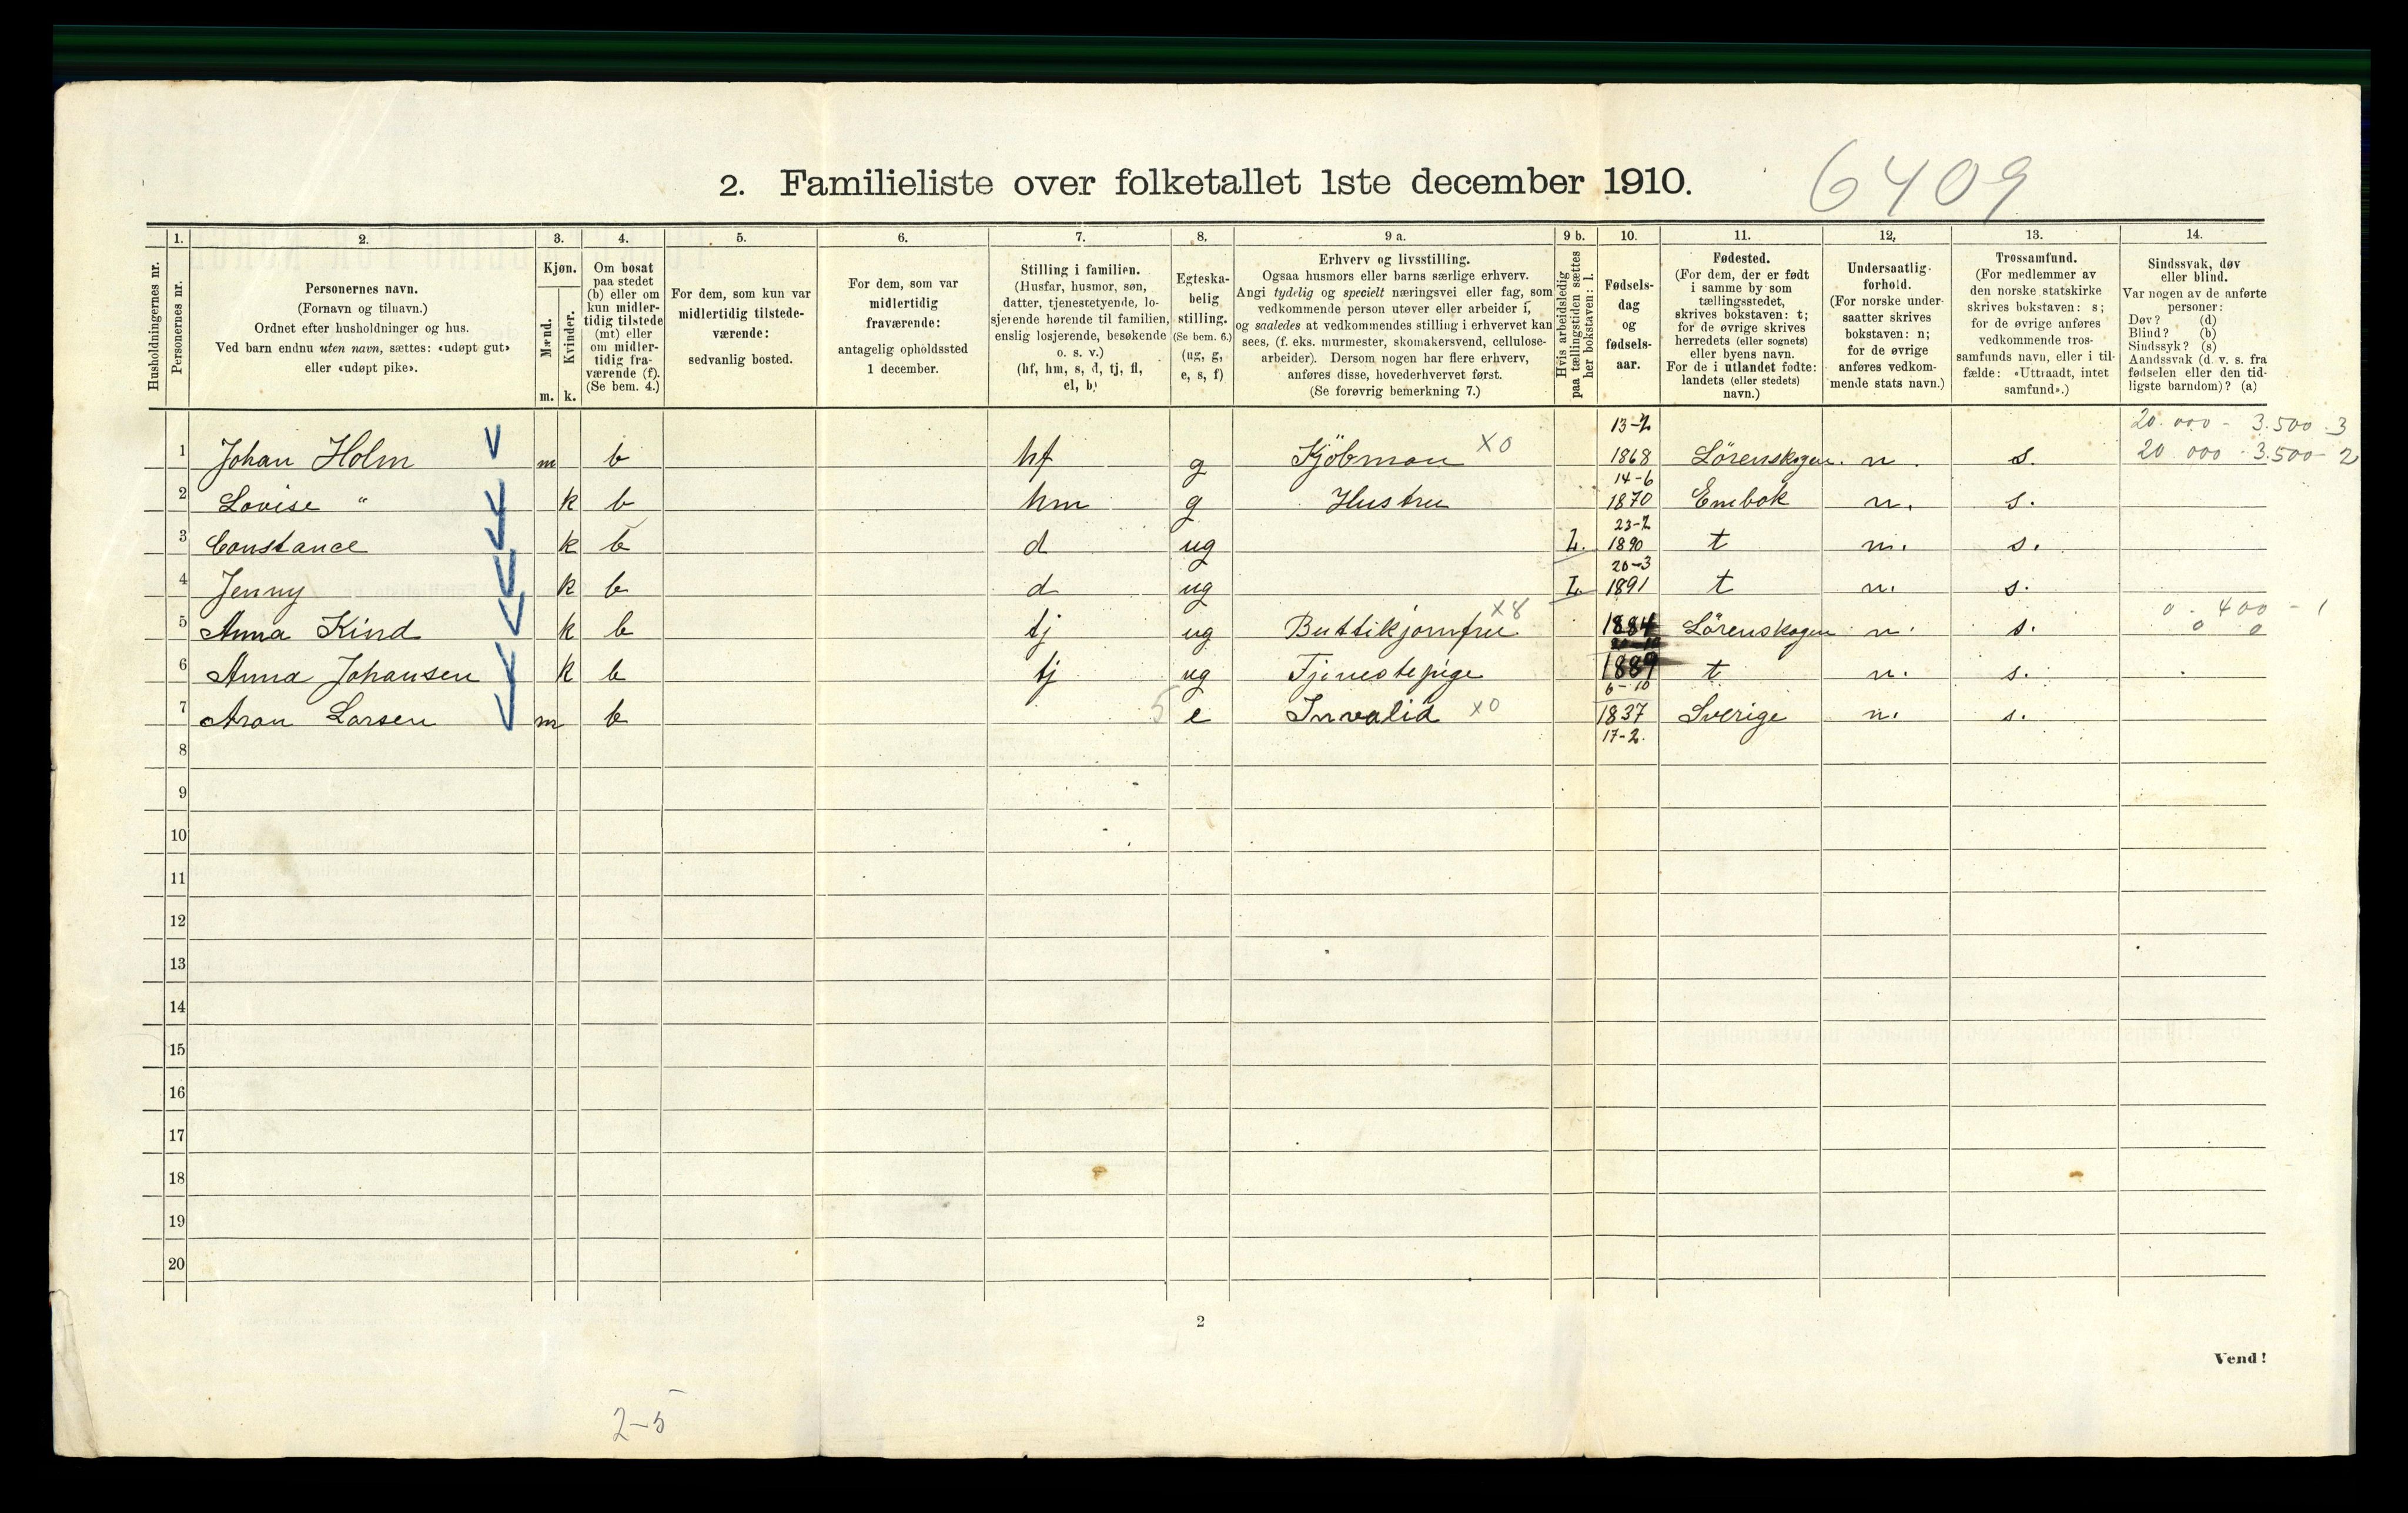 2. Familieliste over folketallet 1ste december 1910.
6409
Husholdningernes nr.
1.
Personernes nr.
2.
Personernes navn.
(Fornavn og tilnavn.)
Ordnet efter husholdninger og hus.
Ved barn endnu uten navn, sættes: «udøpt gut»
eller «udøpt pike».
3.
Kjøn.
Mænd.
Kvinder.
m. k.
4.
Om bosat
paa stedet
(b) eller om
kun midler-
tidig tilstede
(mt) eller
om midler-
tidig fra-
værende (f).
(Se bem. 4.)
5.
For dem, som kun var
midlertidig tilstede-
værende:
sedvanlig bosted.
6.
For dem, som var
midlertidig
fraværende:
antagelig opholdssted
1 december.
7.
Stilling i familien.
(Husfar, husmor, søn,
datter, tjenestetyende, lo-
sjerende hørende til familien,
enslig losjerende, besøkende
o. s. v.)
(hf, hm, s, d, tj, fl,
el, b)
8.
Egteska-
belig
stilling.
(Se bem. 6.)
(ug, g,
e, s, f)
9 a.
Erhverv og livsstilling.
Ogsaa husmors eller barns særlige erhverv.
Angi tydelig og specielt næringsvei eller fag, som
vedkommende person utøver eller arbeider i,
og saaledes at vedkommendes stilling i erhvervet kan
sees, (f. eks. murmester, skomakersvend, cellulose-
arbeider). Dersom nogen har flere erhverv,
anføres disse, hovederhvervet først.
(Se forøvrig bemerkning 7.)
9 b.
Hvis arbeidsledig
paa tællingstiden sættes
her bokstaven: l.
10.
Fødsels-
dag
og
fødsels-
aar.
11.
Fødested.
(For dem, der er født
i samme by som
tællingsstedet,
skrives bokstaven: t;
for de øvrige skrives
herredets (eller sognets)
eller byens navn.
For de i utlandet fødte:
landets (eller stedets)
navn.)
12.
Undersaatlig-
forhold.
(For norske under-
saatter skrives
bokstaven: n;
for de øvrige
anføres vedkom-
mende stats navn.)
13.
Trossamfund.
(For medlemmer av
den norske statskirke
skrives bokstaven: s;
for de øvrige anføres
vedkommende tros-
samfunds navn, eller i til-
fælde: «Uttraadt, intet
samfund».)
14.
Sindssvak, døv
eller blind.
Var nogen av de anførte
personer:
Døv? (d)
Blind? (b)
Sindssyk? (s)
Aandssvak (d. v. s. fra
fødselen eller den tid-
ligste barndom)? (a)
13-2 20.000 - 3.500 . 3
1 Johan Holm m b hf g Kjöbman x0 1868 Lörenskogen. n. s. 20.000 - 3.500 - 2
14-6
2 Lovise " k b hm g Hustru 1870 Enebak n. s.
23-2
3 Constance k b d ug L. 1890 t n. s.
20-3
4 Jenny k b d ug L 1891 t n. s.
5 Anna Kind k b tj ug Buttikjomfru x8 1884 Lörenskogen n. s. 0 - 400 - 1
0 0
6 Anna Johansen k b tj ug Tjenestepige 1889 t n. s.
6-10
7 Aron Larsen m b 5 e Invalid x0 1837 Sverige n. s.
17-2.
8
9
10
11
12
13
14
15
16
17
18
19
20
2
Vend!
2-5